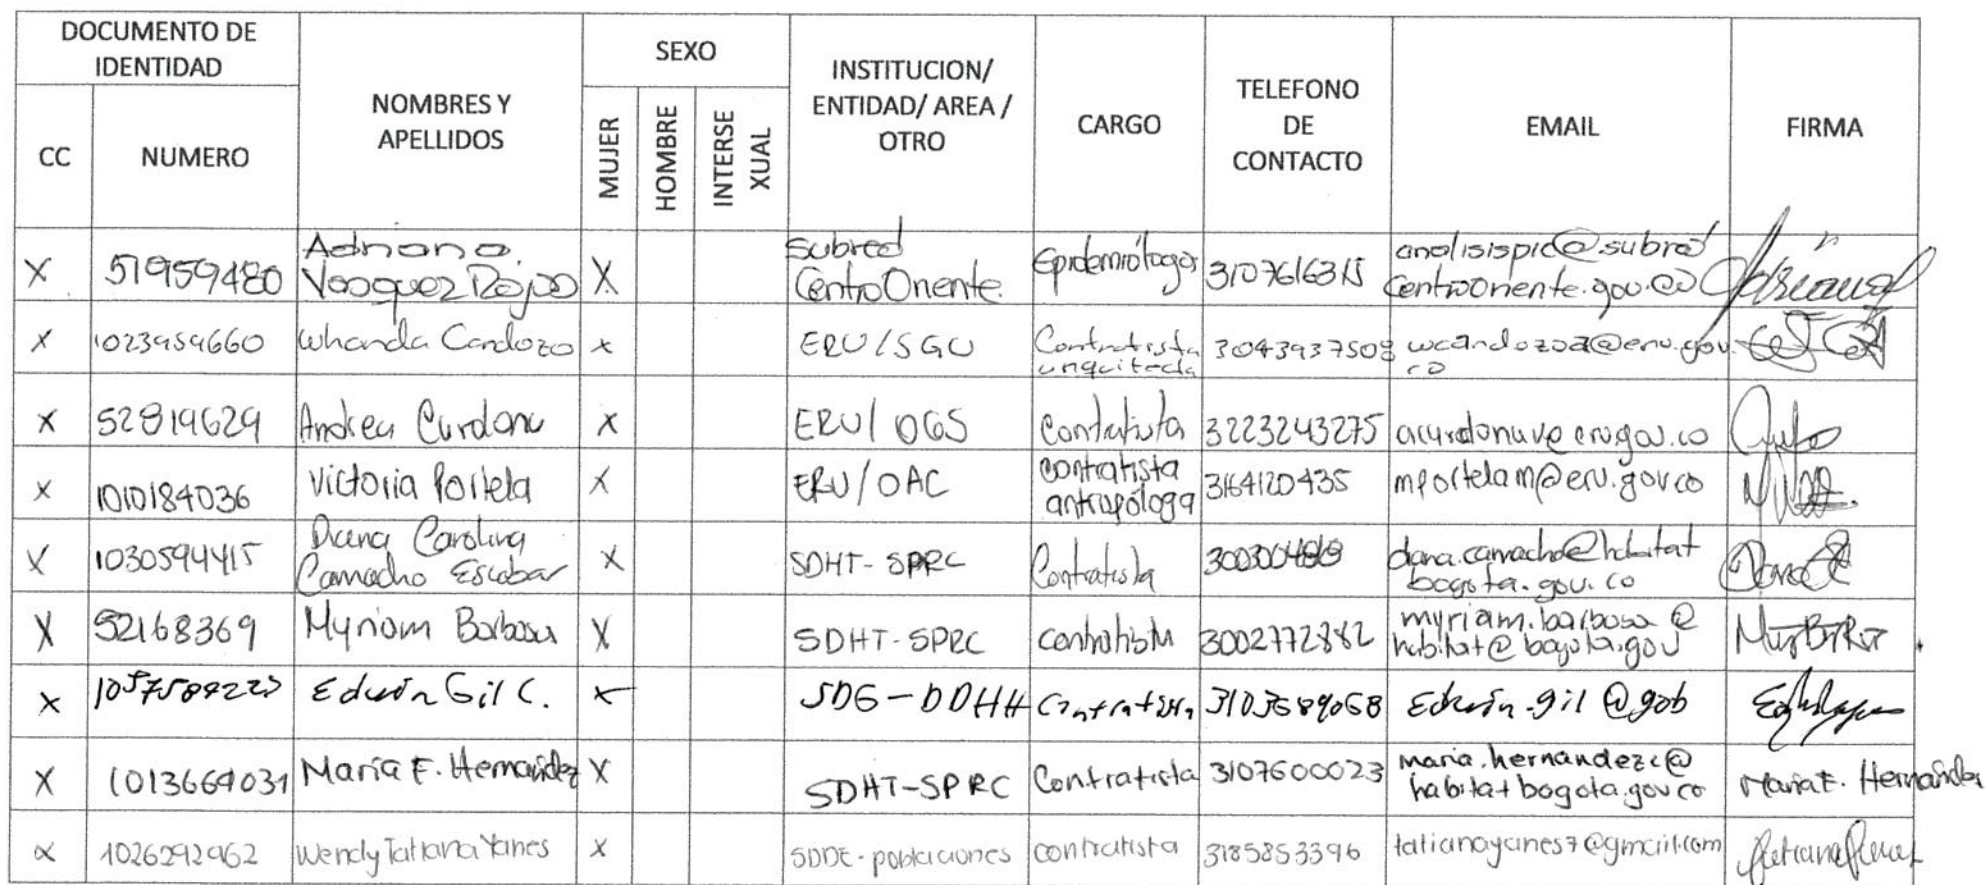 DOCUMENTO DE
IDENTIDAD
NOMBRES Y
APELLIDOS
SEXO
INSTITUCION/
ENTIDAD/ AREA /
OTRO
CARGO
TELEFONO
DE
CONTACTO
EMAIL
FIRMA
CC
NUMERO
MUJER
HOMBRE
INTERSE
XUAL
X 51959480 Adriana Vasquez Rojas X Subred CentroOriente Epidemióloga 3107616315 analisispic@subred centrooriente.gov.co
X 1023959660 Whanda Cardozo X ERU/SGU Contratista 3043937508 wcardozoa@eru.gov.co
X 52819629 Andrea Cardona X ERU/ OGS Contratista 3223243275
X 1010184036 Victoria Portela X ERU/OAC contratista antropóloga 3164120435 mportelam@eru.gov.co
X 1030594415 Diana Carolina Camacho Escobar X SDHT-SPRC Contratista
X 52168369 Myriam Barbosa X SDHT-SPRC contratista 3002772882 myriam.barbosa@ habitat@bogota.gov
X Edwin Gil C. X SDG-DDHH Contratista Edwin.gil@gob
X 1013669031 Maria F. Hernández X SDHT-SPRC Contratista 3107600023 maria.hernandezc@ habitatbogota.gov.co Maria F. Hernández
X 1026292962 Wendy Tatiana Yanes X SDDE-poblaciones contratista 3185853396 tatianayanes7@gmail.com